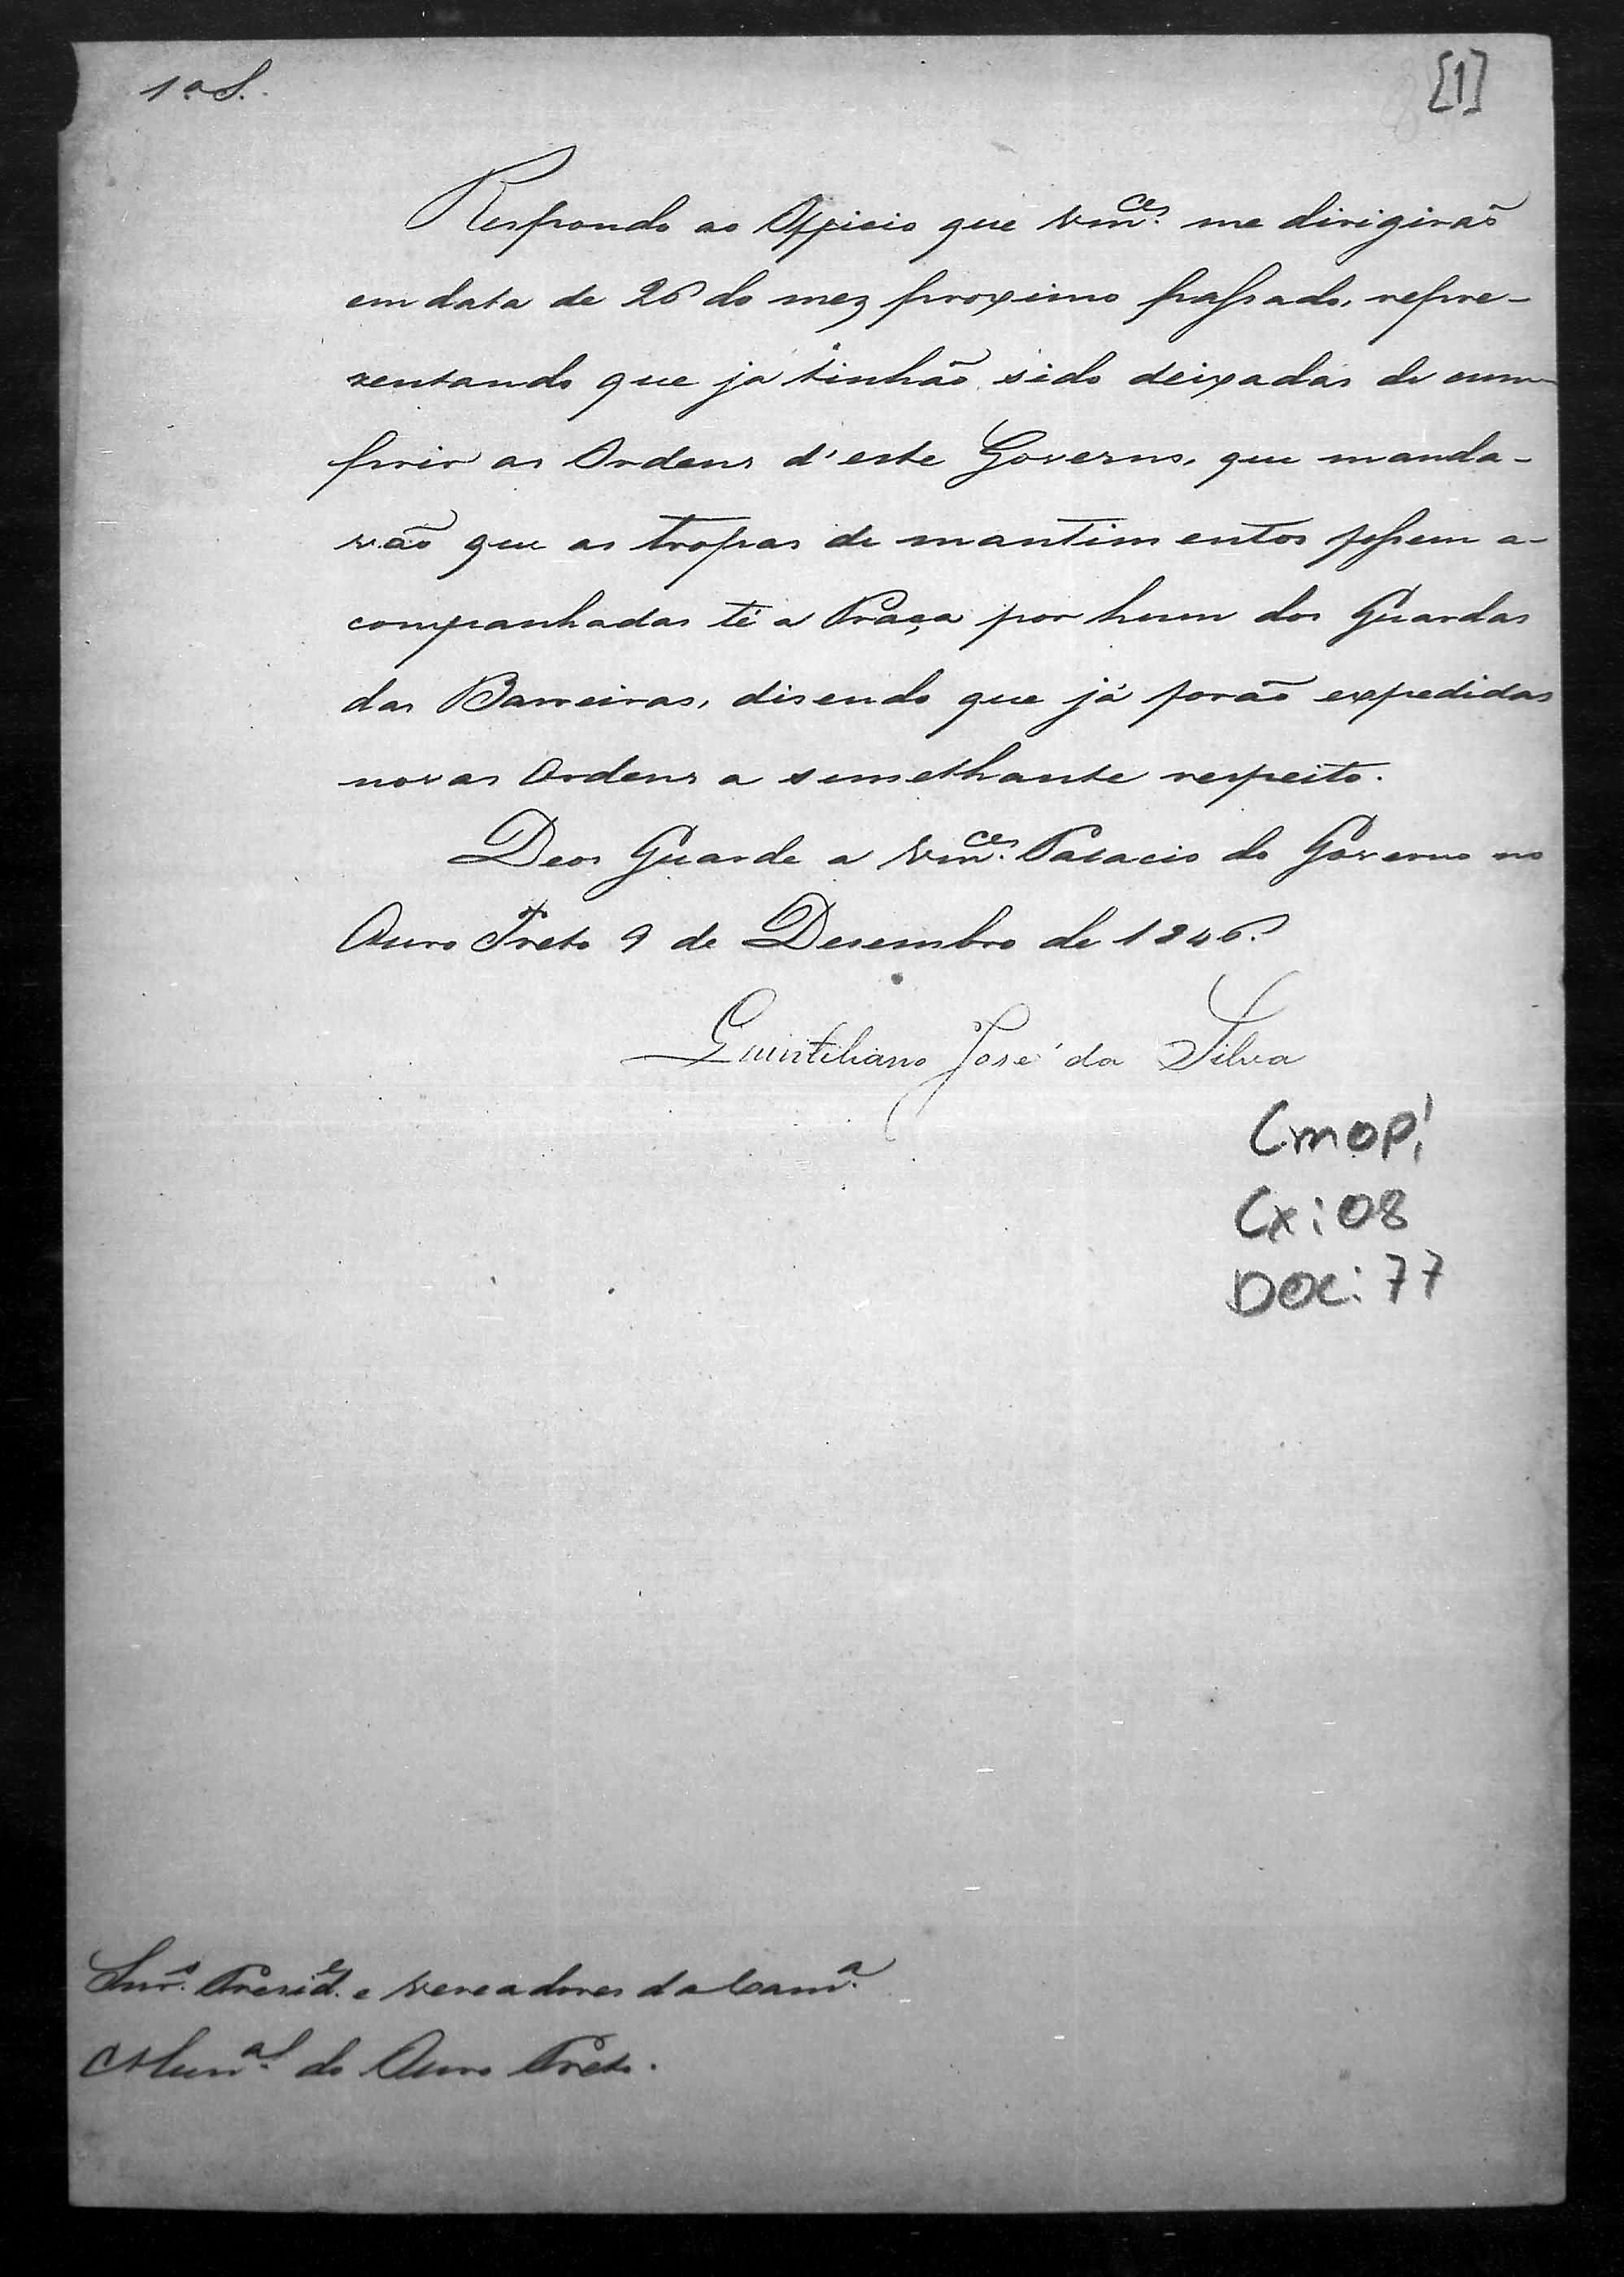 1ª S.
[1]
Respondo ao Officio que Vmces. me dirigirão
em data de 26 do mez proximo passado, repre-
zentando que já tinhão sido deixadas de cum-
prir as Ordens d'este Governo, que manda-
vão que as tropas de mantimentos fossem a-
companhadas té a Praça por hum dos Guardas
das Barreiras, disendo que já forão expedidas
novas Ordens a semelhante respeito.
Deos Guarde a Vmces. Palacio do Governo no
Ouro Preto 9 de Desembro de 1846.
Quintiliano José da Silva
CMOP!
Cx: 08
DOC: 77
Snrs. Preside. e Vereadores da Camª.
Munal. do Ouro Preto.